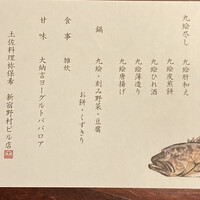 九絵尽し 九絵肝和え
九絵皮煎餅
九絵ひれ酒
九絵薄造り
九絵唐揚げ
鍋 九絵・刻み野菜・豆腐
お餅・くずきり
食事 雑炊
甘味 大納言ヨーグルトババロア
土佐料理祢保希 新宿野村ビル店